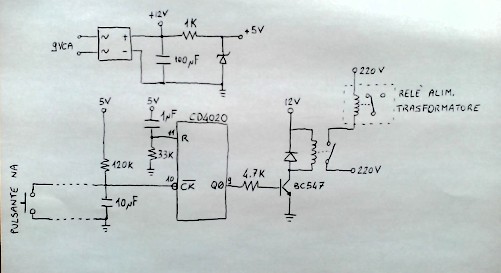 +12V
1K
+5V
9VCA
~ +
~ -
100µF
220V
RELÈ ALIM.
TRASFORMATORE
5V
5V
1µF
CD4020
12V
11
R
33K
120K
4.7K
220V
10
CK
Q0
9
BC547
10µF
PULSANTE NA